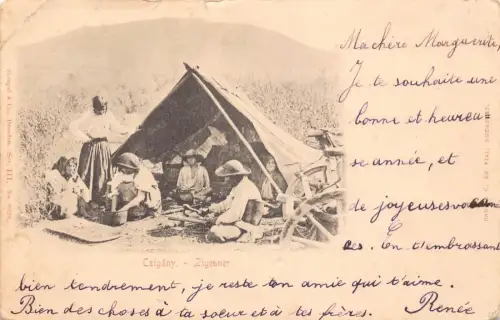 Ma chère Marguerite,
Je te souhaite une
bonne et heureu
se année, et
de joyeuses vacan
ces. En t'embrassant
bien tendrement, je reste ton amie qui t'aime.
Bien des choses à ta soeur et à tes frères. Renée
Czigány. - Zigeuner